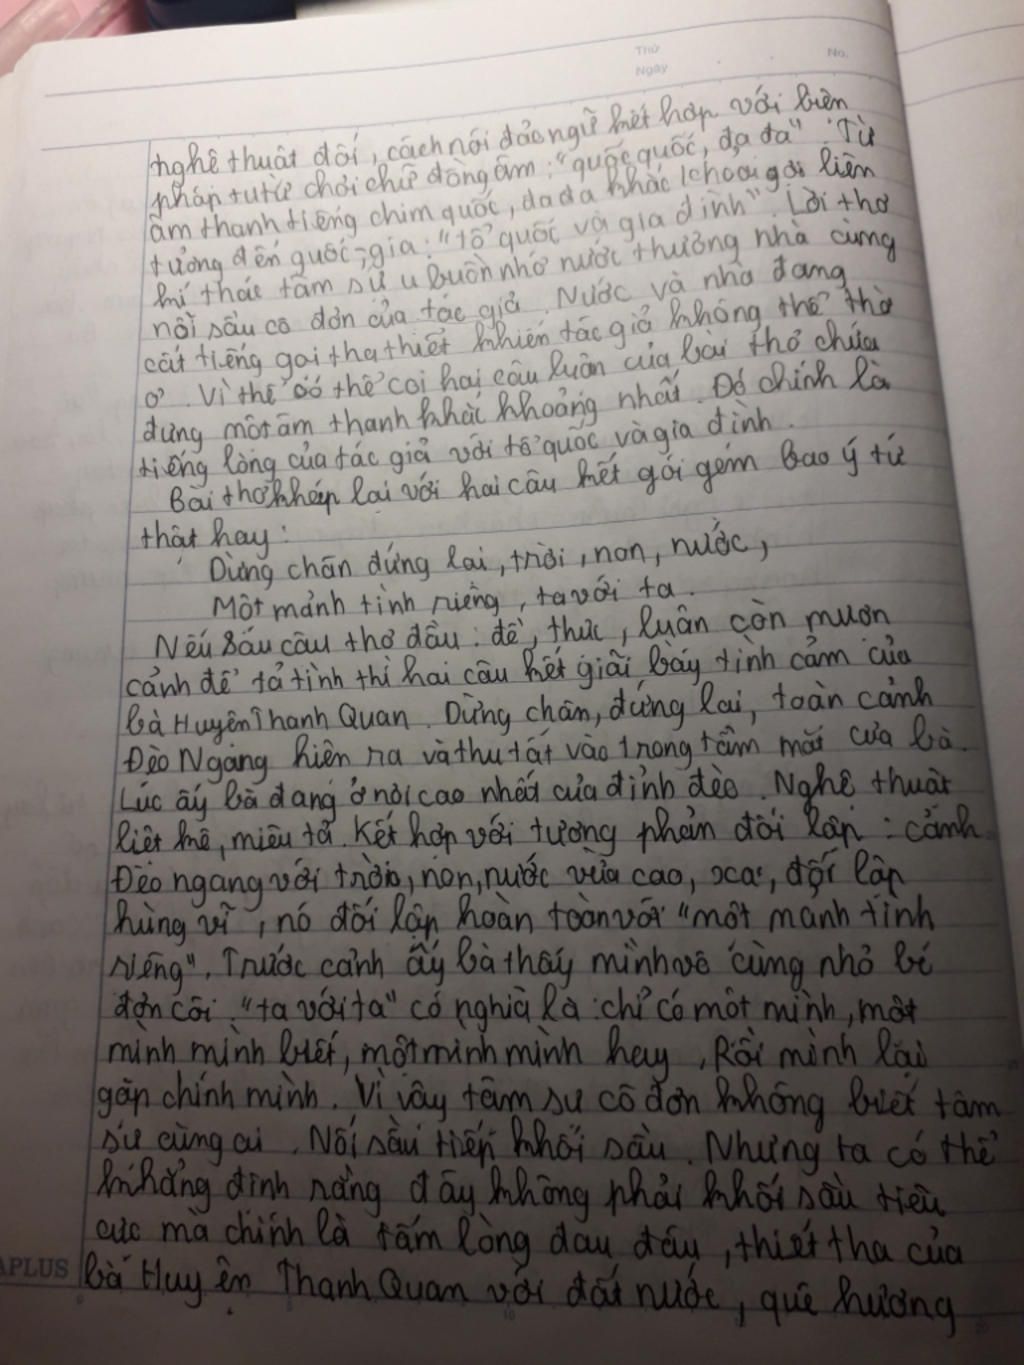 Thứ
No.
Ngày
nghệ thuật đối, cách nói đảo ngữ kết hợp với biện
pháp tu từ chơi chữ đồng âm: "quốc quốc, đa đa". Từ
âm thanh tiếng chim quốc, đa đa khắc khoải gợi liên
tưởng đến quốc, gia: "tổ quốc và gia đình". Lời thơ
kí thác tâm sự u buồn nhớ nước thương nhà cùng
nỗi sầu cô đơn của tác giả. Nước và nhà đang
cất tiếng gọi tha thiết khiến tác giả không thể thờ
ơ. Vì thế có thể coi hai câu luận của bài thơ chứa
đựng một âm thanh khắc khoảng nhất. Đó chính là
tiếng lòng của tác giả với tổ quốc và gia đình.
Bài thơ khép lại với hai câu kết gói gém bao ý tứ
thật hay:
Dừng chân đứng lại, trời, non, nước,
Một mảnh tình riêng, ta với ta.
Nếu sáu câu thơ đầu: đề, thực, luận còn mượn
cảnh để tả tình thì hai câu kết giãi bày tình cảm của
bà Huyện Thanh Quan. Dừng chân, đứng lại, toàn cảnh
Đèo Ngang hiện ra và thu tất vào trong tầm mắt của bà.
Lúc ấy bà đang ở nơi cao nhất của đỉnh đèo. Nghệ thuật
liệt kê, miêu tả. Kết hợp với tương phản đối lập: cảnh
Đèo ngang với trời, non, nước vừa cao, xa, đối lập
hùng vĩ, nó đối lập hoàn toàn với "một mảnh tình
riêng". Trước cảnh ấy bà thấy mình vô cùng nhỏ bé
đơn côi. "ta với ta" có nghĩa là: chỉ có một mình, một
mình mình biết, một mình mình hay, Rồi mình lại
gặp chính mình. Vì vậy tâm sự cô đơn không biết tâm
sự cùng ai. Nối sầu tiếp khối sầu. Nhưng ta có thể
khẳng định rằng đây không phải khối sầu tiêu
cực mà chính là tấm lòng đau đáu, thiết tha của
APLUS bà Huyện Thanh Quan với đất nước, quê hương